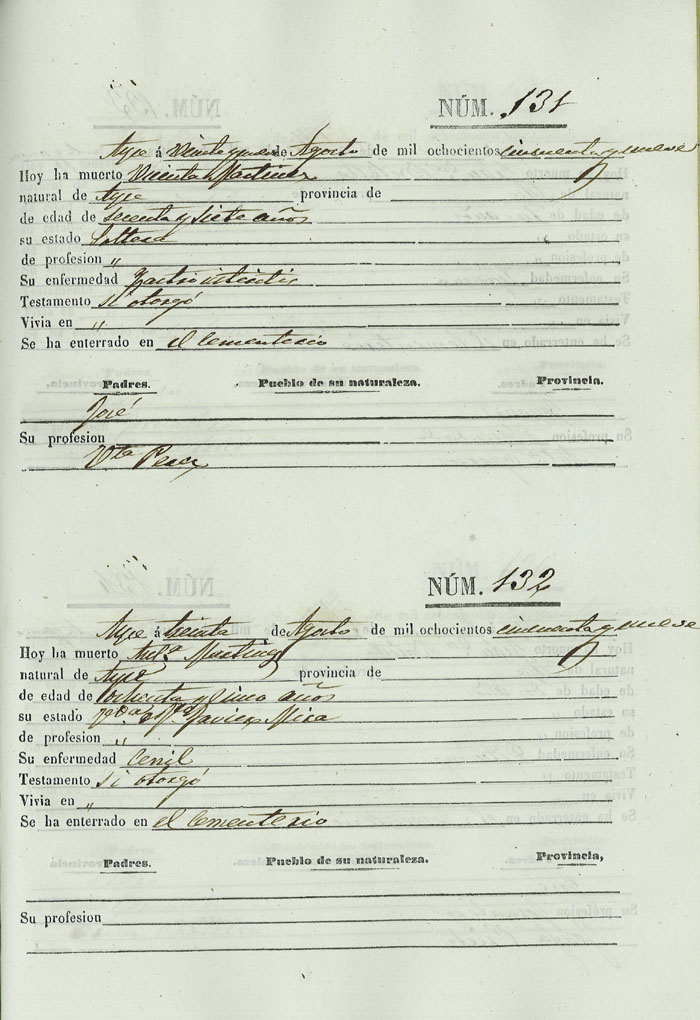 NÚM. 131
Aspe á Veinte y nueve de Agosto de mil ochocientos cincuenta y nueve
Hoy ha muerto Vicenta Martinez
natural de Aspe provincia de
de edad de secenta y siete años
su estado Soltera
de profesion "
Su enfermedad
Testamento si otorgó
Vivia en "
Se ha enterrado en el Cementerio
Padres. Pueblo de su naturaleza. Provincia.
José
Su profesion
Vta Perez
NÚM. 132
Aspe á treinta de Agosto de mil ochocientos cincuenta y nueve
Hoy ha muerto Martinez
natural de Aspe provincia de
de edad de ochenta y cinco años
su estado Javier Mira
de profesion "
Su enfermedad Cenil
Testamento si otorgó
Vivia en "
Se ha enterrado en el Cementerio
Padres. Pueblo de su naturaleza. Provincia,
Su profesion